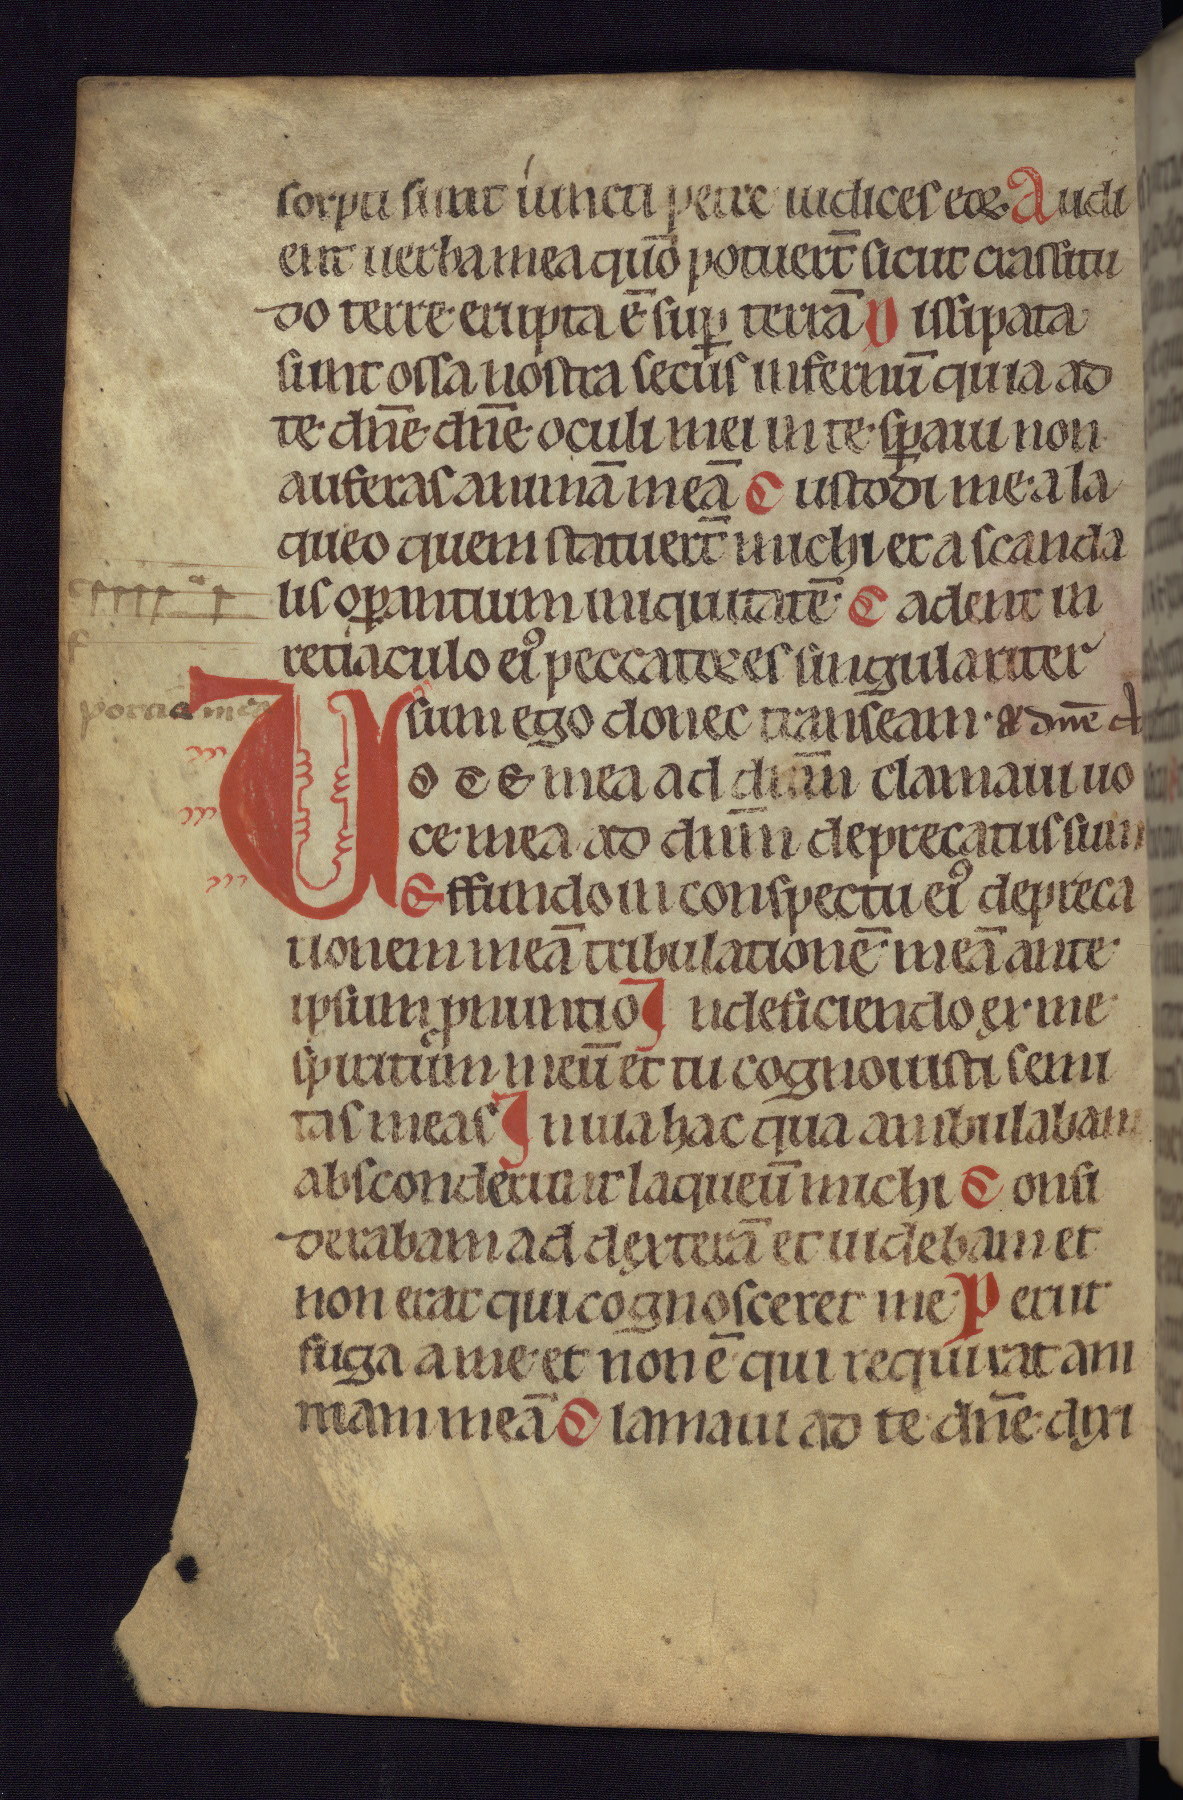 sorpti sunt iuncti petre iudices eoꝝ Audi
ent uerba mea quō potuert̄ sicut crassitu
do terre erupta ē suꝑ terrā Dissipata
sunt ossa nostra secus infernū quia ad
te dn̄e dn̄e oculi mei in te sꝑaui non
auferas animā meā Custodi me a la
queo quem statuert̄ michi et a scanda
lis oꝑantium iniquitatē Cadent in
retiaculo eiꝰ peccatores singulariter
portio mea
sum ego donec transeam
Uoce mea ad dnm̄ clamaui uo
ce mea ad dnm̄ deprecatus sum
Effundo in conspectu eiꝰ depreca
tionem meā tribulationē meā ante
ipsum pnuntio In deficiendo ex me
spiritum meū et tu cognouisti semi
tas meas In uia hac qua ambulabam
absconderunt laqueū michi Consi
derabam ad dexterā et uidebam et
non erat qui cognosceret me Periit
fuga a me et non ē qui requirat ani
mam meā Clamaui ad te dn̄e dixi